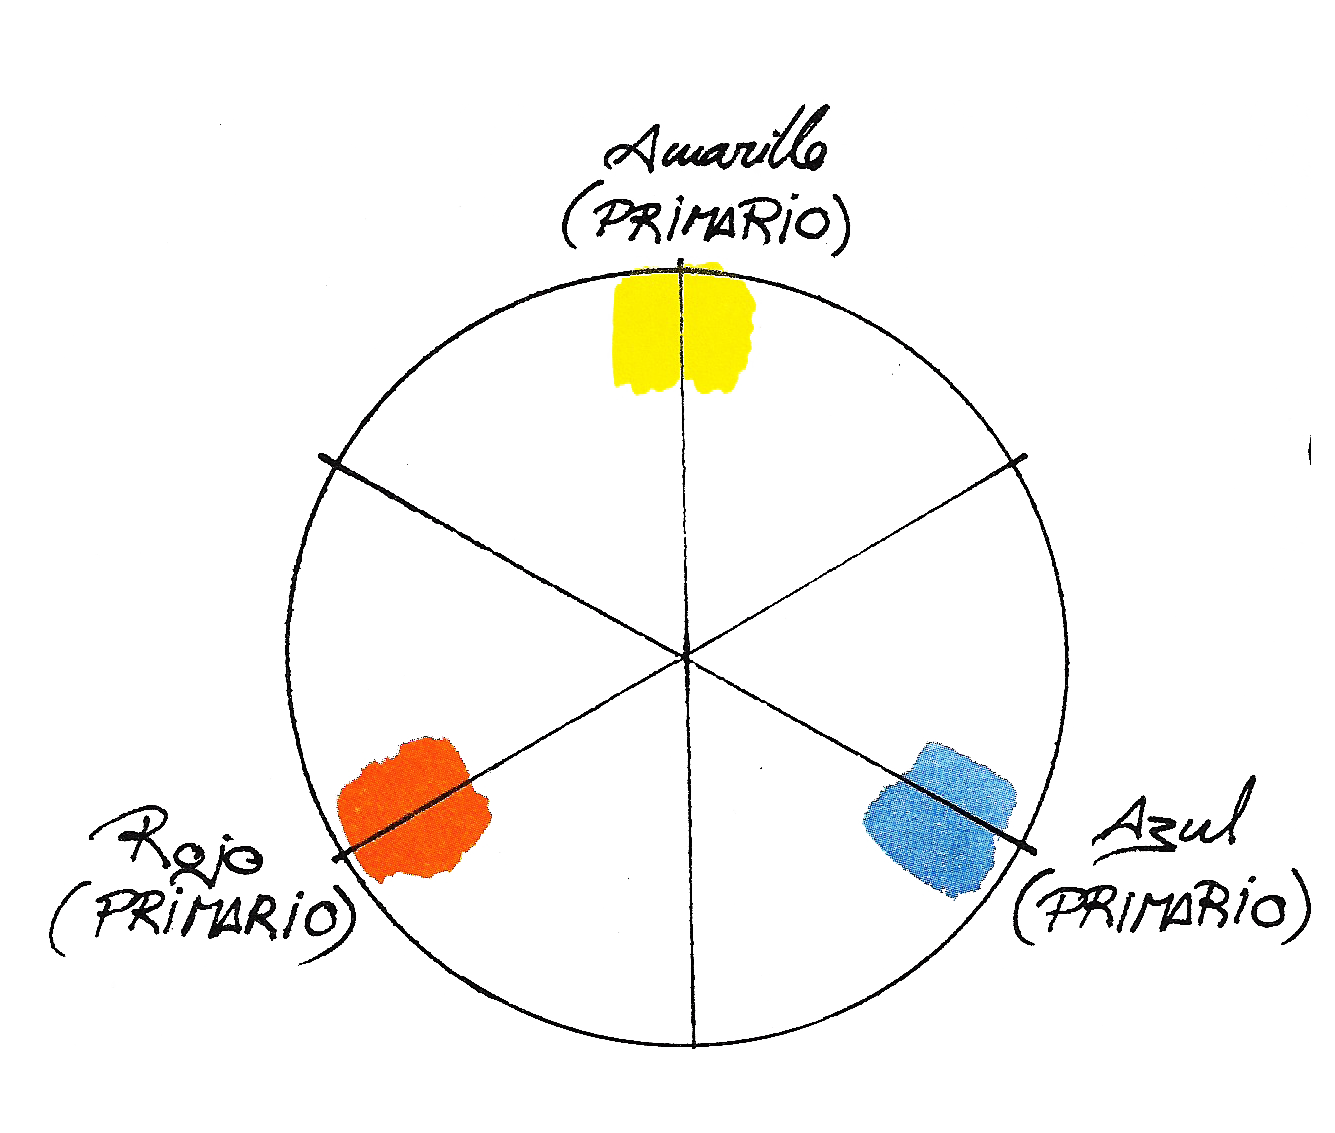 Amarillo
(PRIMARIO)
Rojo
(PRIMARIO)
Azul
(PRIMARIO)